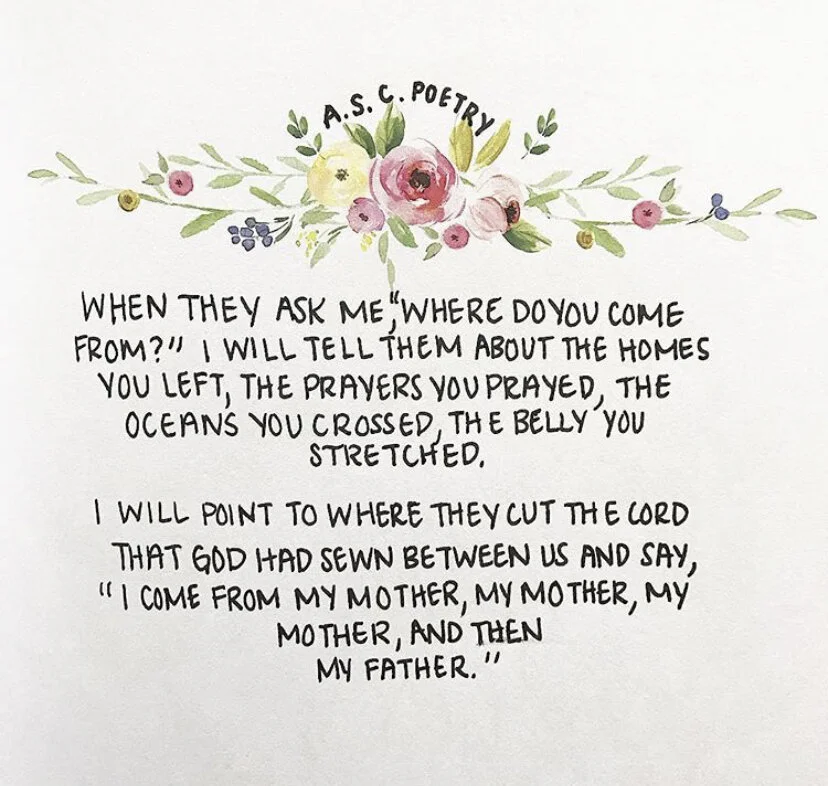 A.S.C. POETRY
WHEN THEY ASK ME, "WHERE DO YOU COME
FROM?" I WILL TELL THEM ABOUT THE HOMES
YOU LEFT, THE PRAYERS YOU PRAYED, THE
OCEANS YOU CROSSED, THE BELLY YOU
STRETCHED.
I WILL POINT TO WHERE THEY CUT THE CORD
THAT GOD HAD SEWN BETWEEN US AND SAY,
"I COME FROM MY MOTHER, MY MOTHER, MY
MOTHER, AND THEN
MY FATHER."